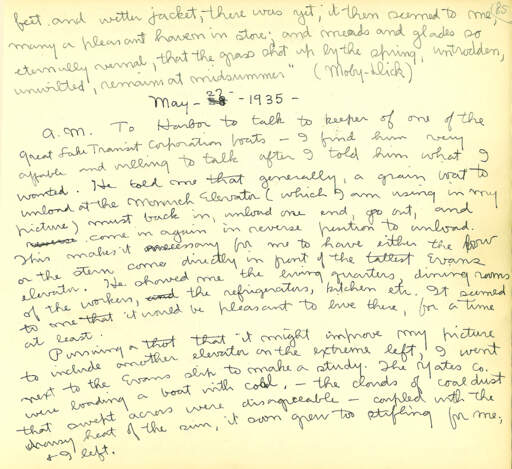 85
feet and wetter jacket, there was yet, it then seemed to me,
many a pleasant haven in store; and meads and glades so
eternally vernal, that the grass shot up by the spring, untrodden,
unwilted, remains at midsummer" (Moby-Dick)
May - 29 - 1935 -
A.M. To Harbor to talk to keeper of one of the
Great Lake Transit Corporation boats - I find him very
affable and willing to talk after I told him what I
wanted. He told me that generally, a grain boat to
unload at the Monarch Elevator (which I am using in my
picture) must back in, unload one end, go out, and
come in again in reverse position to unload.
This makes it necessary for me to have either the bow
or the stern come directly in front of the tallest Evans
elevator. He showed me the living quarters, dining rooms
of the workers, and the refrigerators, kitchen etc. It seemed
to me that it would be pleasant to live there, for a time
at least.
Pursuing a thot that it might improve my picture
to include another elevator on the extreme left, I went
next to the Evans slip to make a study. The Yates Co.
were loading a boat with coal, - the clouds of coal dust
that swept across were disagreeable - coupled with the
drowsy heat of the sun, it soon grew too stifling for me,
& I left.